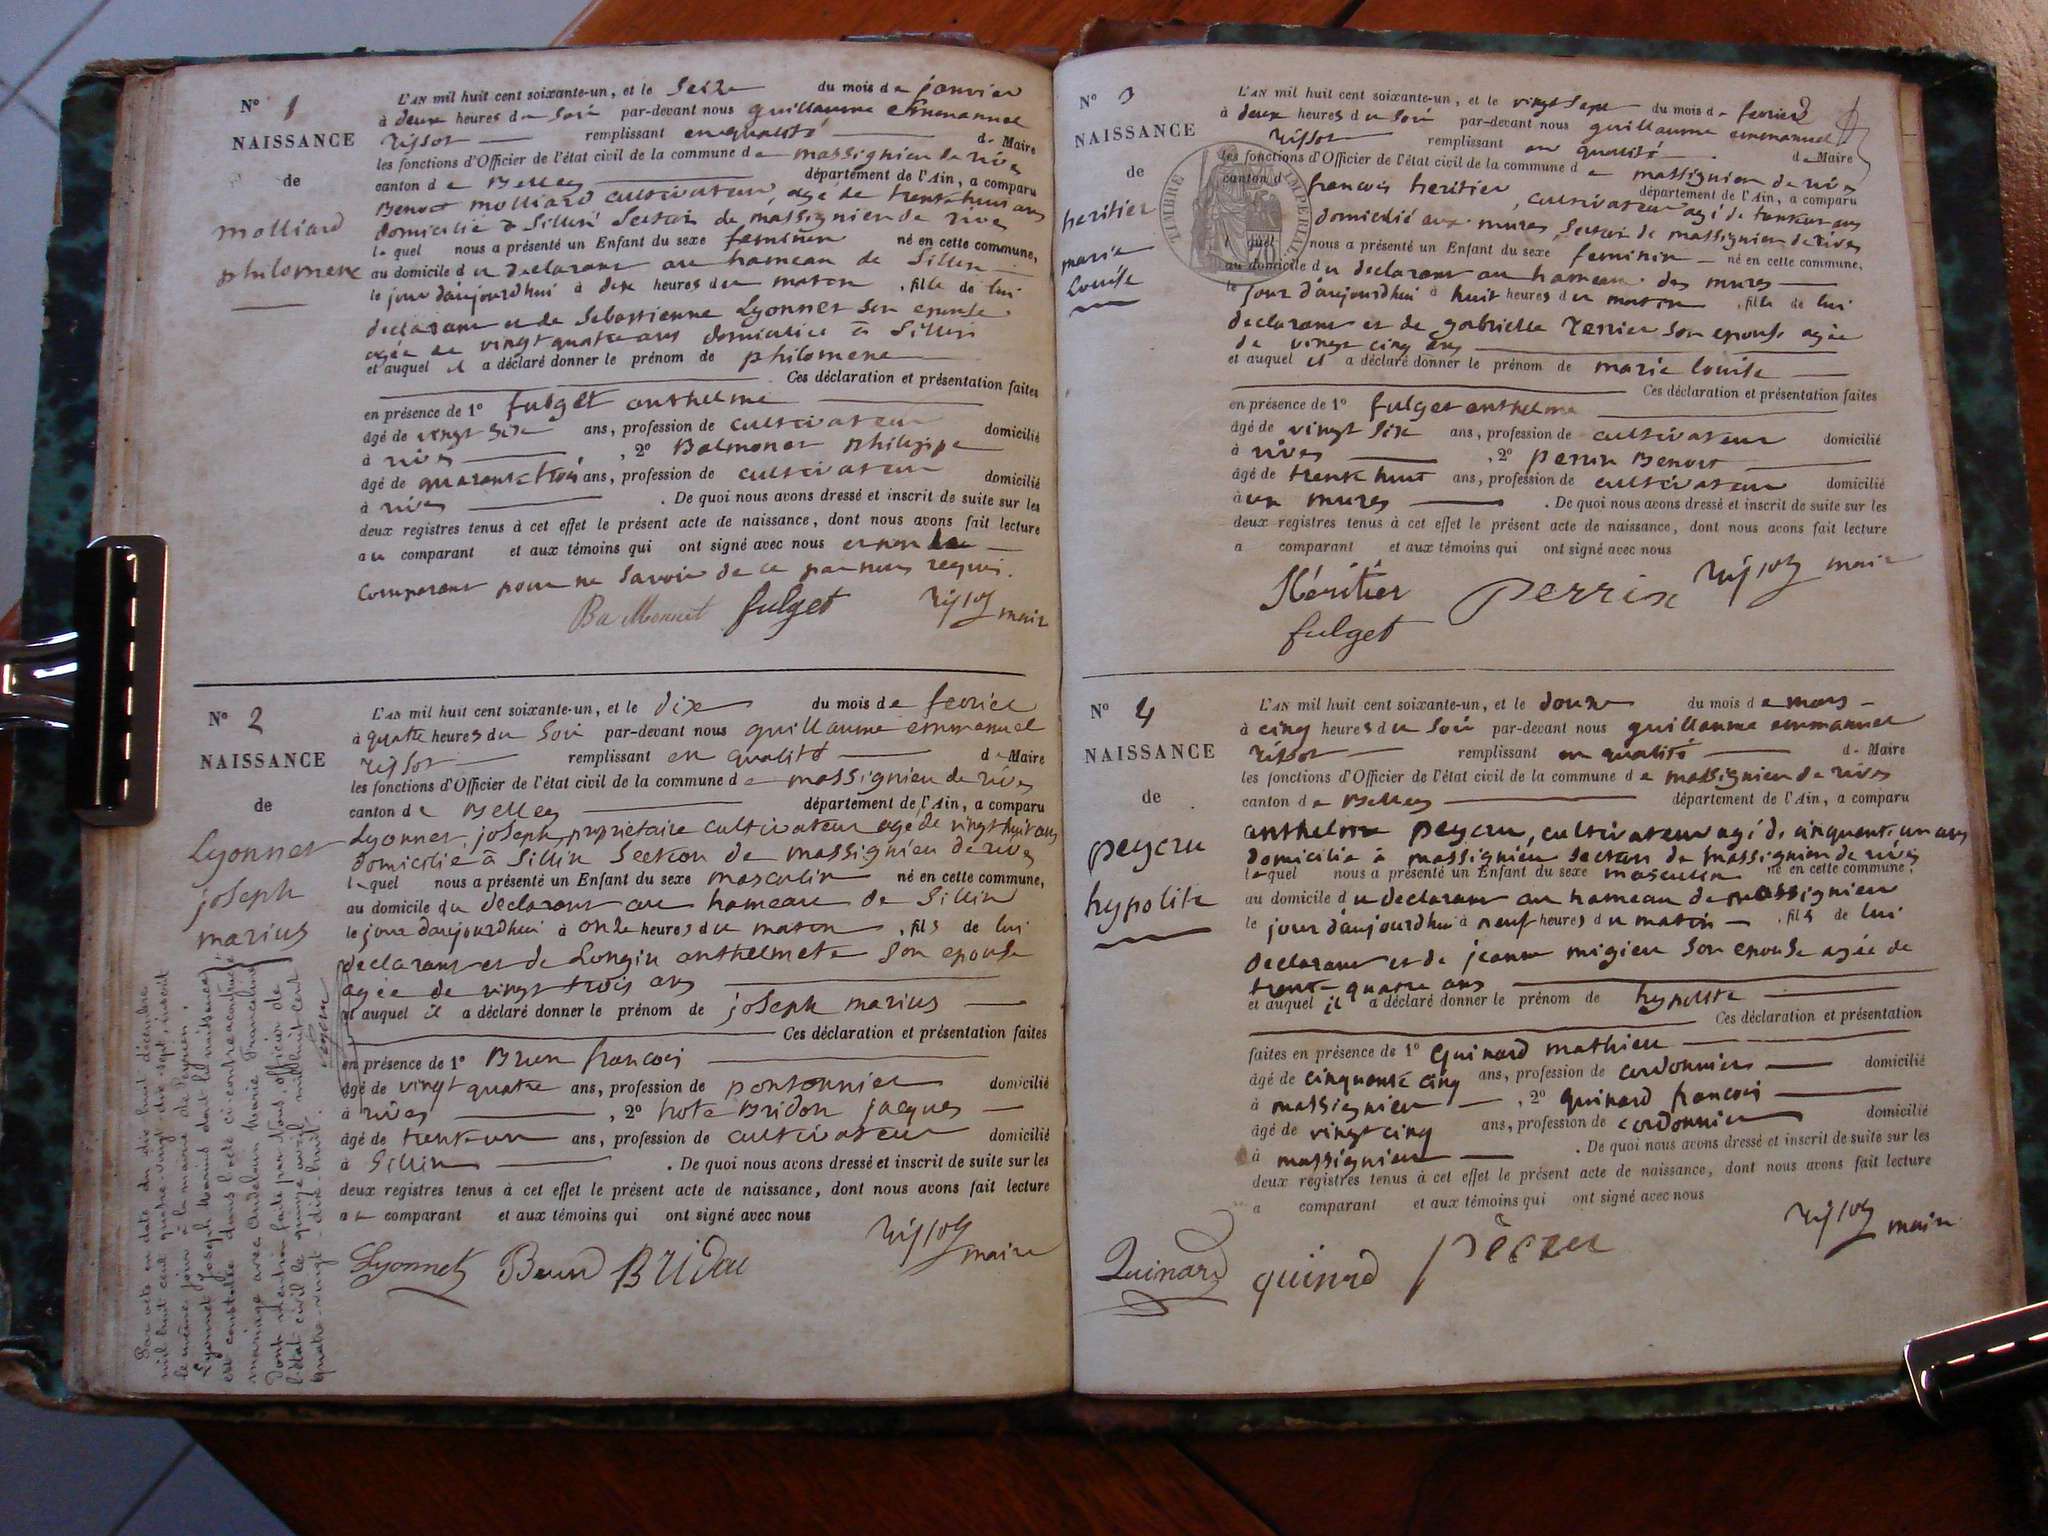 N° 1
NAISSANCE
de
molliard
philomene
L'AN mil huit cent soixante-un, et le Seize du mois de janvier
à deux heures du Soir par-devant nous guillaume emmanuel
rissot remplissant en qualité de Maire
les fonctions d'Officier de l'état civil de la commune de massignieu de rives
canton de Belley département de l'Ain, a comparu
Benoit molliard cultivateur, agé de trente huit ans
domicilié à Sillin Section de massignieu de rives
lequel nous a présenté un Enfant du sexe feminin né en cette commune,
au domicile du declarant au hameau de Sillin
le jour d'aujourd'hui à dix heures du matin, fille de lui
declarant et de Sebastienne Lyonnet son epouse
agée de vingt quatre ans domiciliée à Sillin
et auquel il a déclaré donner le prénom de philomene
Ces déclaration et présentation faites
en présence de 1° fulget anthelme
âgé de vingt six ans, profession de cultivateur domicilié
à rives, 2° Balmonet philippe
âgé de quarante trois ans, profession de cultivateur domicilié
à rives. De quoi nous avons dressé et inscrit de suite sur les
deux registres tenus à cet effet le présent acte de naissance, dont nous avons fait lecture
au comparant et aux témoins qui ont signé avec nous et non le
comparant pour ne savoir de ce par nous requis.
fulget rissot maire
N° 2
NAISSANCE
de
Lyonnet
joseph
marius
L'AN mil huit cent soixante-un, et le dix du mois de fevrier
à quatre heures du Soir par-devant nous guillaume emmanuel
rissot remplissant en qualité de Maire
les fonctions d'Officier de l'état civil de la commune de massignieu de rives
canton de Belley département de l'Ain, a comparu
Lyonnet joseph, propriétaire cultivateur agé de vingt huit ans
domicilié à Sillin Section de massignieu de rives
lequel nous a présenté un Enfant du sexe masculin né en cette commune,
au domicile du declarant au hameau de Sillin
le jour d'aujourd'hui à onze heures du matin, fils de lui
declarant et de Longin anthelmete son epouse
agée de vingt trois ans
et auquel il a déclaré donner le prénom de joseph marius
Ces déclaration et présentation faites
en présence de 1° Brun françois
âgé de vingt quatre ans, profession de pontonnier domicilié
à rives, 2° hote Bridon jacques
âgé de trente un ans, profession de cultivateur domicilié
à Sillin. De quoi nous avons dressé et inscrit de suite sur les
deux registres tenus à cet effet le présent acte de naissance, dont nous avons fait lecture
au comparant et aux témoins qui ont signé avec nous
Lyonnet Brun rissot maire
Par acte en date du dix huit décembre
mil huit cent quatre-vingt dix-sept, inscrit
le même jour à la mairie de
Lyonnet Joseph marius dont la naissance
est constatée dans l'acte ci-contre a contracté
mariage avec Marie
Dont mention faite par Nous, officier de
l'état civil le quinze avril mil huit cent
quatre-vingt-dix-huit.
N° 3
NAISSANCE
de
heritier
marie
Louise
TIMBRE IMPERIAL
L'AN mil huit cent soixante-un, et le vingt sept du mois de fevrier
à deux heures du Soir par-devant nous guillaume emmanuel
rissot remplissant en qualité de Maire
les fonctions d'Officier de l'état civil de la commune de massignieu de rives
canton d département de l'Ain, a comparu
françois heritier, cultivateur agé de trente un ans
domicilié aux mures Section de massignieu de rives
lequel nous a présenté un Enfant du sexe feminin né en cette commune,
au domicile du declarant au hameau des mures
le jour d'aujourd'hui à huit heures du matin, fille de lui
declarant et de gabrielle terrier son epouse agée
de vingt cinq ans
et auquel il a déclaré donner le prénom de marie louise
Ces déclaration et présentation faites
en présence de 1° fulget anthelme
âgé de vingt six ans, profession de cultivateur domicilié
à rives, 2° perrin Benoit
âgé de trente huit ans, profession de cultivateur domicilié
aux mures. De quoi nous avons dressé et inscrit de suite sur les
deux registres tenus à cet effet le présent acte de naissance, dont nous avons fait lecture
a comparant et aux témoins qui ont signé avec nous
Héritier perrin rissot maire
fulget
N° 4
NAISSANCE
de
peycru
hypolite
L'AN mil huit cent soixante-un, et le douze du mois de mars
à cinq heures du Soir par-devant nous guillaume emmanuel
rissot remplissant en qualité de Maire
les fonctions d'Officier de l'état civil de la commune de massignieu de rives
canton de Belley département de l'Ain, a comparu
anthelme peycru, cultivateur agé de cinquante un ans
domicilié à massignieu Section de massignieu de rives
lequel nous a présenté un Enfant du sexe masculin né en cette commune,
au domicile du declarant au hameau de massignieu
le jour d'aujourd'hui à neuf heures du matin, fils de lui
declarant et de jeanne migieu son epouse agée de
trente quatre ans
et auquel il a déclaré donner le prénom de hypolite
Ces déclaration et présentation
faites en présence de 1° Guinard mathieu
âgé de cinquante cinq ans, profession de cordonnier domicilié
à massignieu, 2° guinard françois
âgé de vingt cinq ans, profession de cordonnier domicilié
à massignieu. De quoi nous avons dressé et inscrit de suite sur les
deux registres tenus à cet effet le présent acte de naissance, dont nous avons fait lecture
a comparant et aux témoins qui ont signé avec nous
Guinard guinard rissot maire